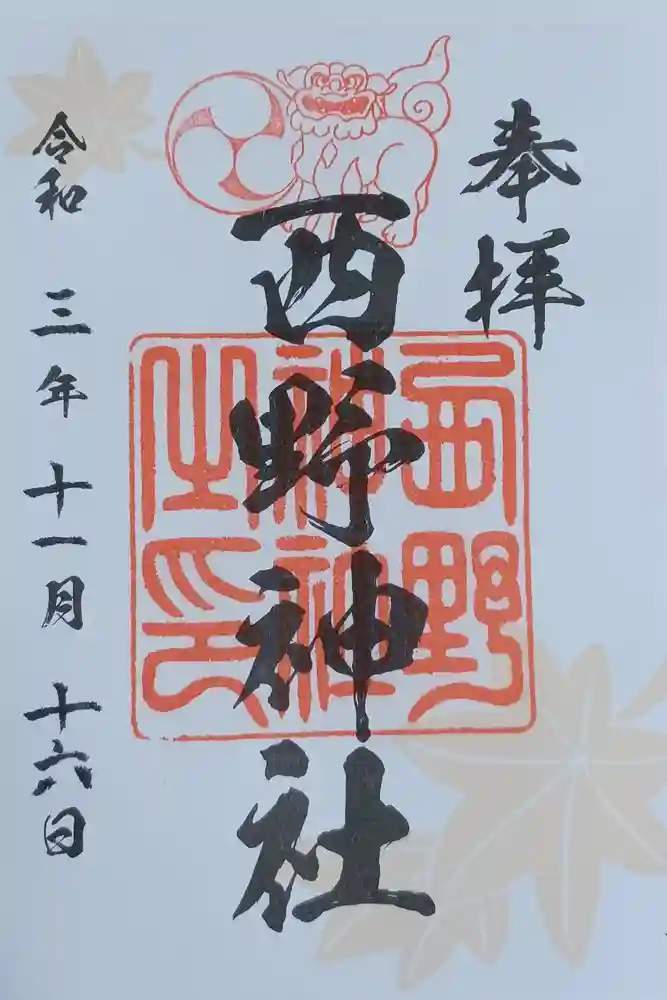 奉拝
西野神社
西野
神社
之印
令和 三年 十一月 十六日